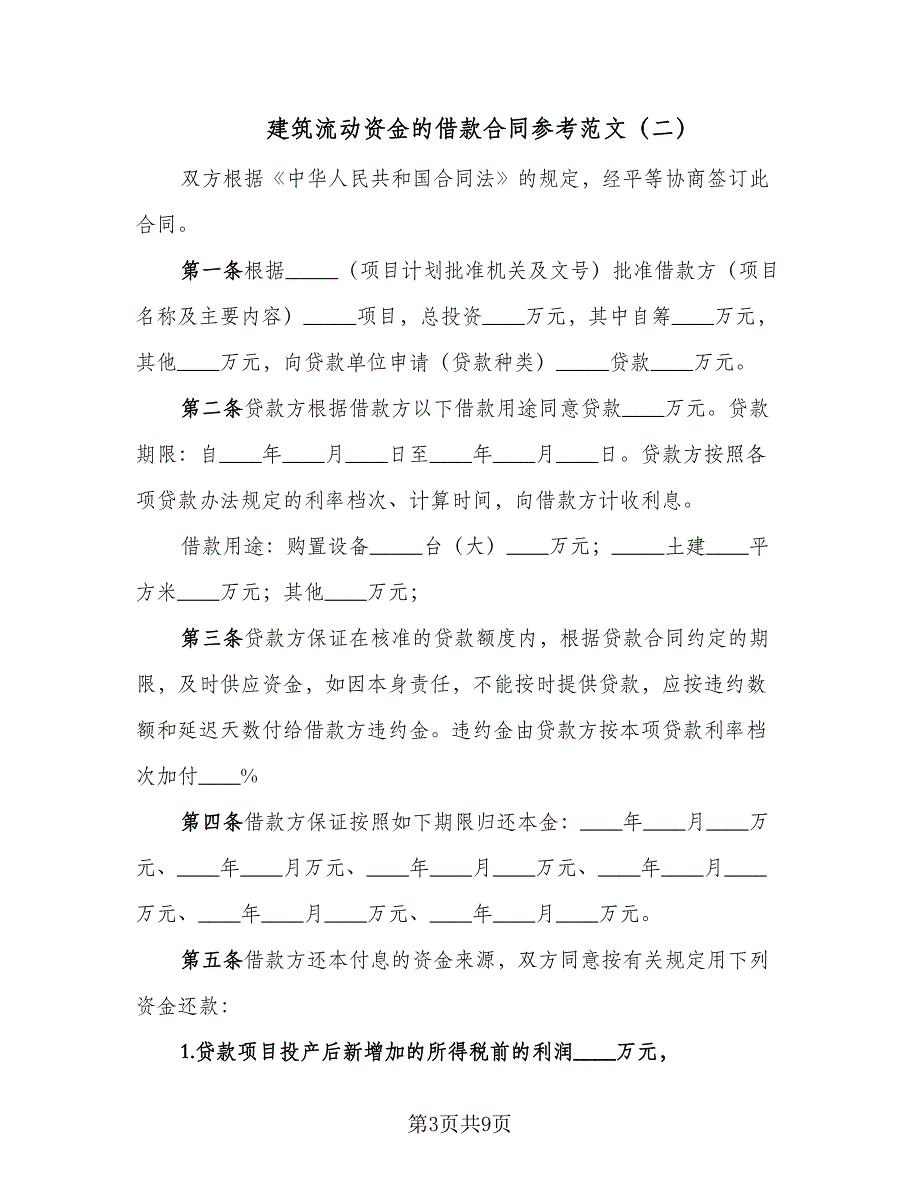 建筑流动资金的借款合同参考范文（二）
双方根据《中华人民共和国合同法》的规定，经平等协商签订此
合同。
第一条根据_____（项目计划批准机关及文号）批准借款方（项目
名称及主要内容）_____项目，总投资____万元，其中自筹____万元，
其他____万元，向贷款单位申请（贷款种类）_____贷款____万元。
第二条贷款方根据借款方以下借款用途同意贷款____万元。贷款
期限：自____年____月____日至____年____月____日。贷款方按照各
项贷款办法规定的利率档次、计算时间，向借款方计收利息。
借款用途：购置设备_____台（大）____万元；_____土建____平
方米____万元；其他____万元；
第三条贷款方保证在核准的贷款额度内，根据贷款合同约定的期
限，及时供应资金，如因本身责任，不能按时提供贷款，应按违约数
额和延迟天数付给借款方违约金。违约金由贷款方按本项贷款利率档
次加付____%
第四条借款方保证按照如下期限归还本金：____年____月____万
元、____年____月万元、____年____月____万元、____年____月____
万元、____年____月____万元、____年____月____万元。
第五条借款方还本付息的资金来源，双方同意按有关规定用下列
资金还款：
1.贷款项目投产后新增加的所得税前的利润____万元，
第3页共9页